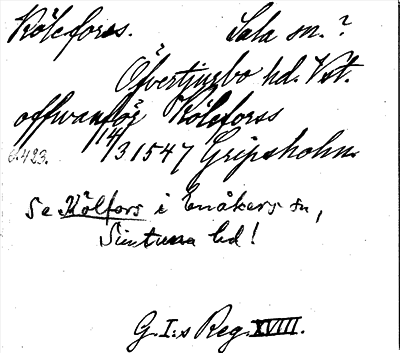 Köleforss. Sala sn.?
Öfvertjurbo hd. Vst.
offwanför Köleforss
s. 423. 14/3 1547 Gripsholm.
Se Kölfors i Enåkers sn,
Simtuna hd!
G. I:s Reg. XVIII.